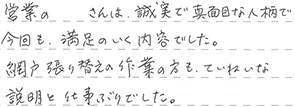 営業の　　　さんは、誠実で真面目な人柄で
今回も、満足のいく内容でした。
網戸張り替えの作業の方も、ていねいな
説明と仕事ぶりでした。